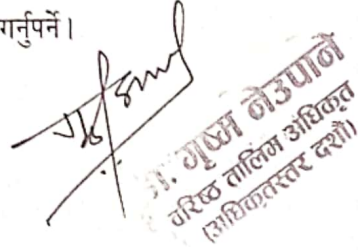 गर्नुपर्ने।
डा. गृष्म नेउपाने
वरिष्ठ तालिम अधिकृत
(अधिकृतस्तर दशौं)